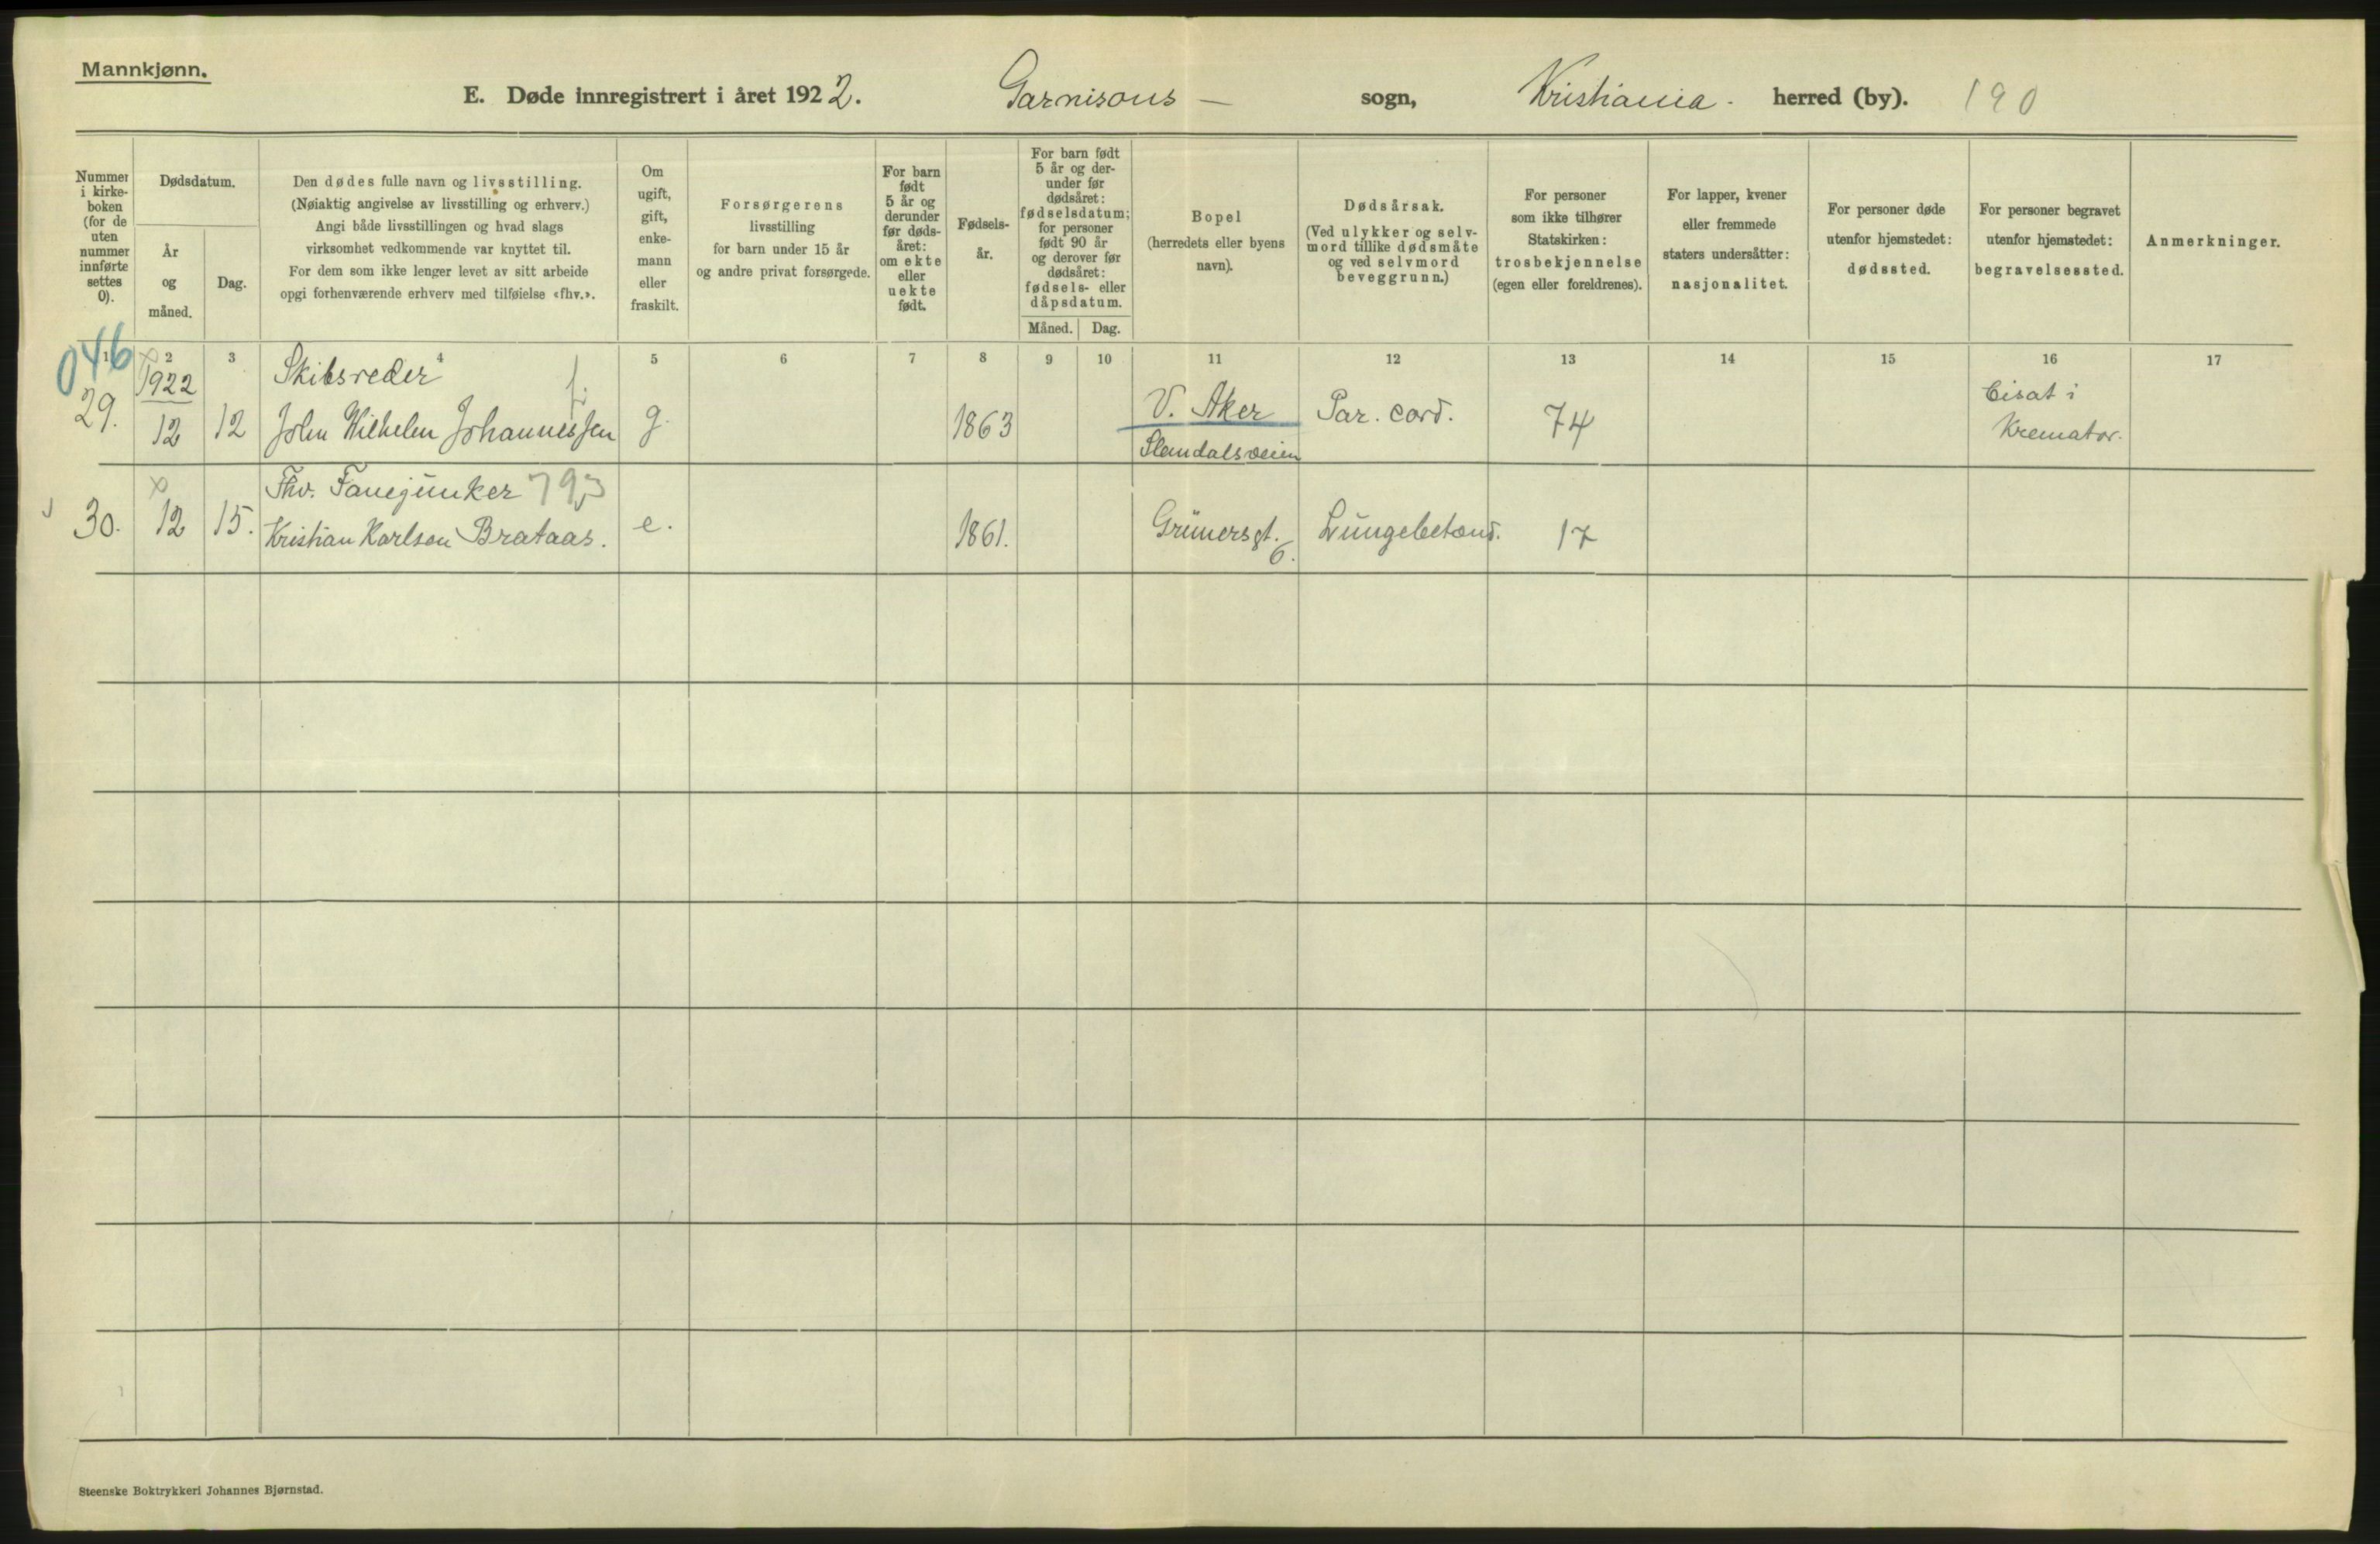 Mannkjønn.
E. Døde innregistrert i året 1922. Garnisons — sogn, Kristiania. herred (by). 190
Nummer
i kirke-
boken
(for de
uten
nummer
innførte
settes
0).
Dødsdatum.
År
og
måned.
Dag.
Den dødes fulle navn og livsstilling.
(Nøiaktig angivelse av livsstilling og erhverv.)
Angi både livsstillingen og hvad slags
virksomhet vedkommende var knyttet til.
For dem som ikke lenger levet av sitt arbeide
opgi forhenværende erhverv med tilføielse «fhv.».
Om
ugift,
gift,
enke-
mann
eller
fraskilt.
Forsørgerens
livsstilling
for barn under 15 år
og andre privat forsørgede.
For barn
født
5 år og
derunder
før døds-
året:
om ekte
eller
uekte
født.
Fødsels-
år.
For barn født
5 år og der-
under før
dødsåret:
fødselsdatum;
for personer
født 90 år
og derover før
dødsåret:
fødsels- eller
dåpsdatum.
Måned. Dag.
Bopel
(herredets eller byens
navn).
Dødsårsak.
(Ved ulykker og selv-
mord tillike dødsmåte
og ved selvmord
beveggrunn.)
For personer
som ikke tilhører
Statskirken:
trosbekjennelse
(egen eller foreldrenes).
For lapper, kvener
eller fremmede
staters undersåtter:
nasjonalitet.
For personer døde
utenfor hjemstedet:
dødssted.
For personer begravet
utenfor hjemstedet:
begravelsessted.
Anmerkninger.
1 2 3 4 5 6 7 8 9 10 11 12 13 14 15 16 17
046
1922 Skibsreder f. Bisat i
29. 12 12 John Wilhelm Johannessen g. 1863 V. Aker Par. cord. 74 Kremator.
Slemdalsveien
x Fhv. Fanejunker 793
30. 12 15. Kristian Karlsen Brataas. e. 1861. Grünersgt. 6. Lungebetænd. 17
Steenske Boktrykkeri Johannes Bjørnstad.